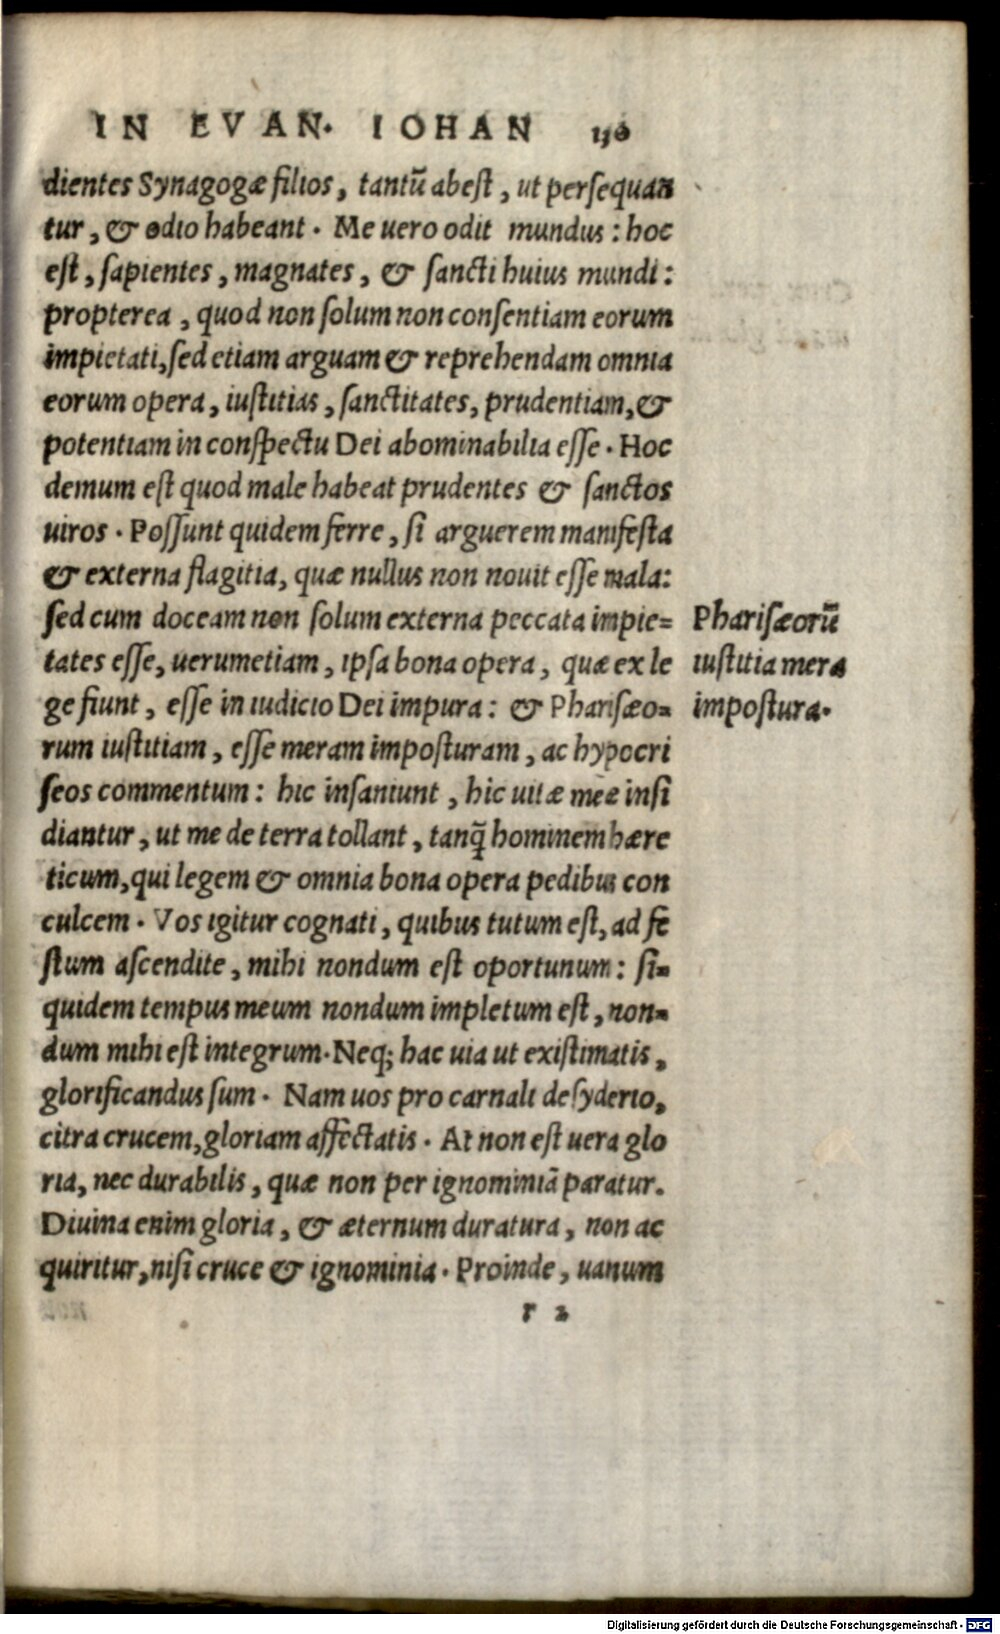 IN EVAN. IOHAN 130
dientes Synagogæ filios, tantũ abest, ut persequan
tur, & odio habeant. Me uero odit mundus: hoc
est, sapientes, magnates, & sancti huius mundi:
propterea, quod non solum non consentiam eorum
impietati, sed etiam arguam & reprehendam omnia
eorum opera, iustitias, sanctitates, prudentiam, &
potentiam in conspectu Dei abominabilia esse. Hoc
demum est quod male habeat prudentes & sanctos
uiros. Possunt quidem ferre, si arguerem manifesta
& externa flagitia, quæ nullus non nouit esse mala:
sed cum doceam non solum externa peccata impie=
tates esse, uerumetiam, ipsa bona opera, quæ ex le
ge fiunt, esse in iudicio Dei impura: & Pharisæo=
rum iustitiam, esse meram imposturam, ac hypocri
seos commentum: hic insaniunt, hic uitæ meæ insi
diantur, ut me de terra tollant, tanq̃ hominem hære
ticum, qui legem & omnia bona opera pedibus con
culcem. Vos igitur cognati, quibus tutum est, ad fe
stum ascendite, mihi nondum est oportunum: si=
quidem tempus meum nondum impletum est, non=
dum mihi est integrum. Neq; hac uia ut existimatis,
glorificandus sum. Nam uos pro carnali desyderio,
citra crucem, gloriam affectatis. At non est uera glo
ria, nec durabilis, quæ non per ignominiã paratur.
Diuina enim gloria, & æternum duratura, non ac
quiritur, nisi cruce & ignominia. Proinde, uanum
r 2
Pharisæorũ
iustitia mera
impostura.
Digitalisierung gefördert durch die Deutsche Forschungsgemeinschaft - DFG